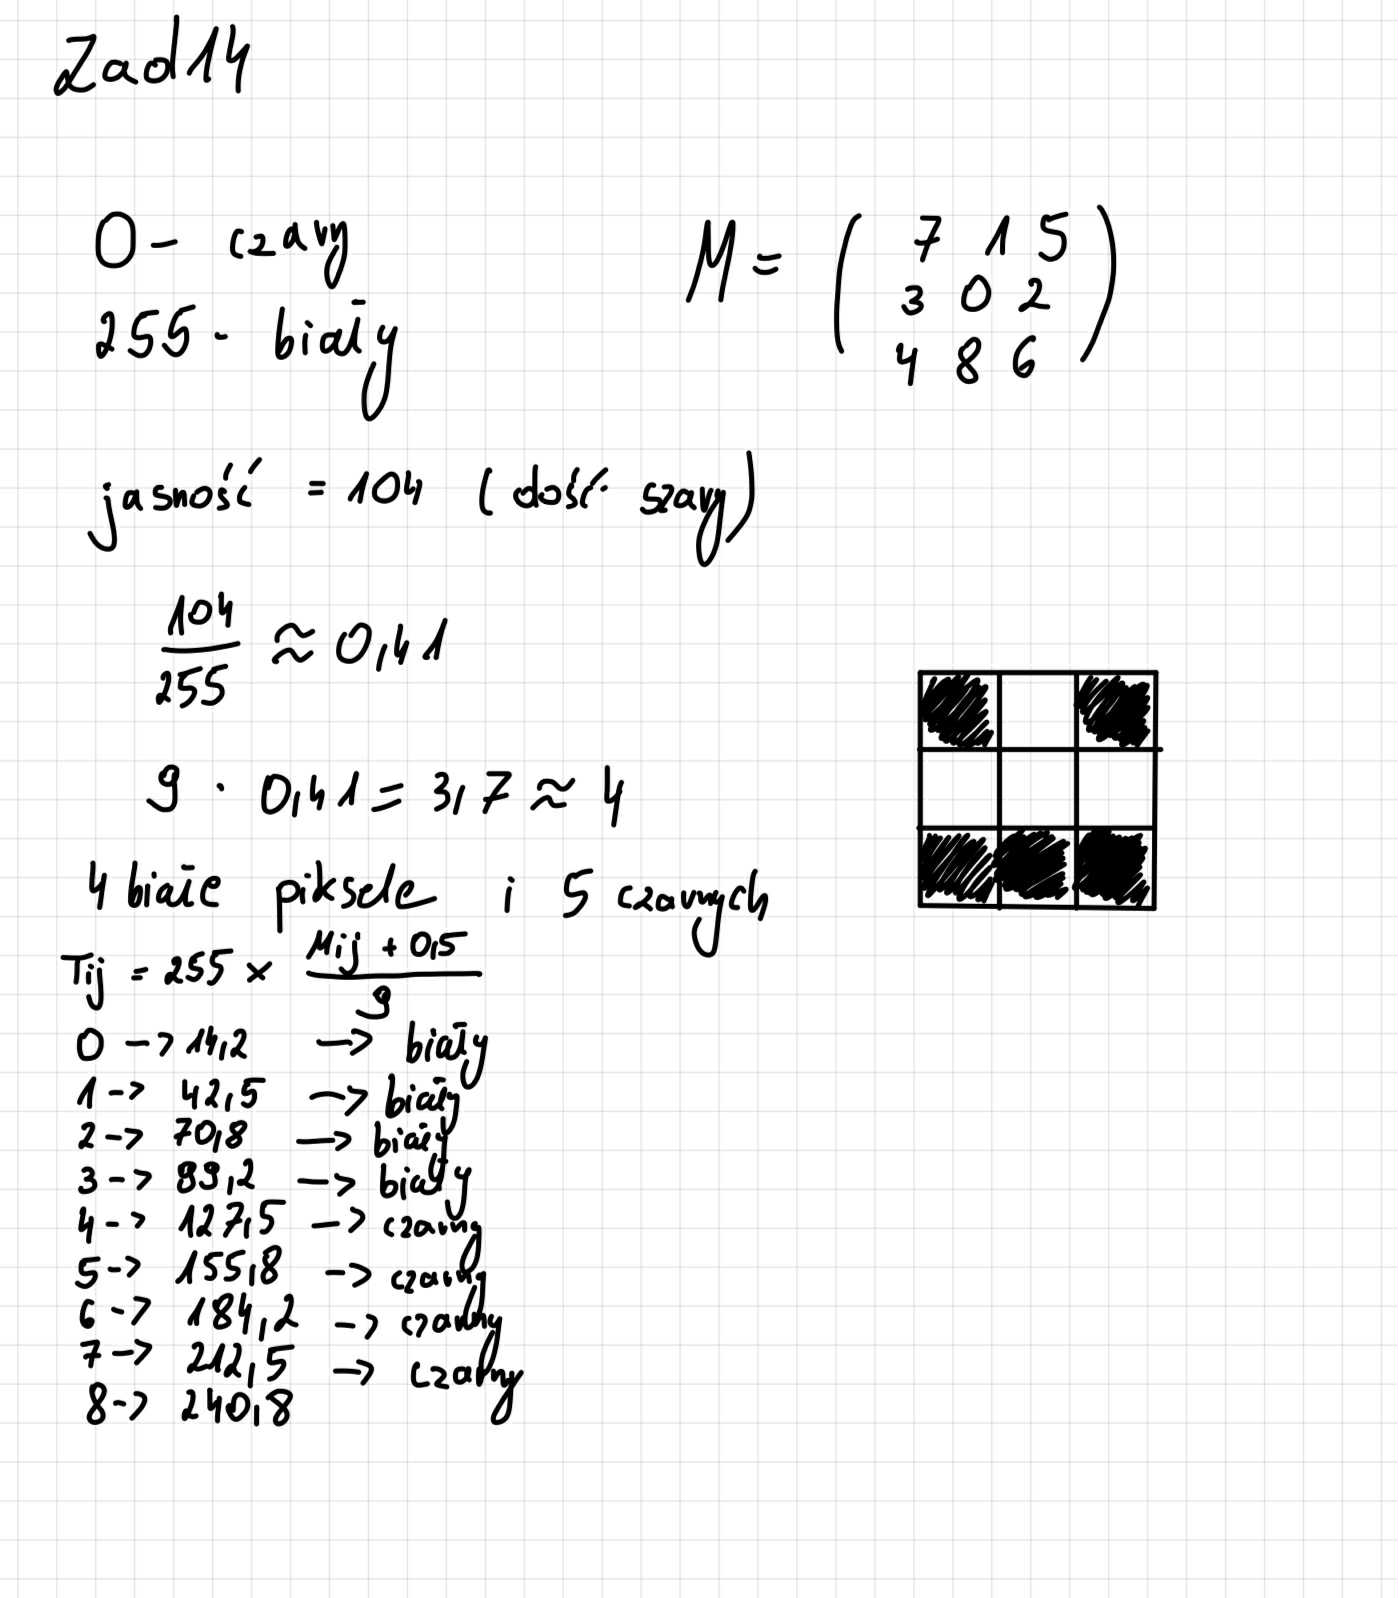 Zad 14
0 - czarny
255 - biały
M = ( 7 1 5
3 0 2
4 8 6 )
jasność = 104 (dość szary)
104
255
≈ 0,41
9 · 0,41 = 3,7 ≈ 4
4 białe piksele i 5 czarnych
Tij = 255 × Mij + 0,5
9
0 -> 14,2 -> biały
1 -> 42,5 -> biały
2 -> 70,8 -> biały
3 -> 99,2 -> biały
4 -> 127,5 -> czarny
5 -> 155,8 -> czarny
6 -> 184,2 -> czarny
7 -> 212,5 -> czarny
8 -> 240,8